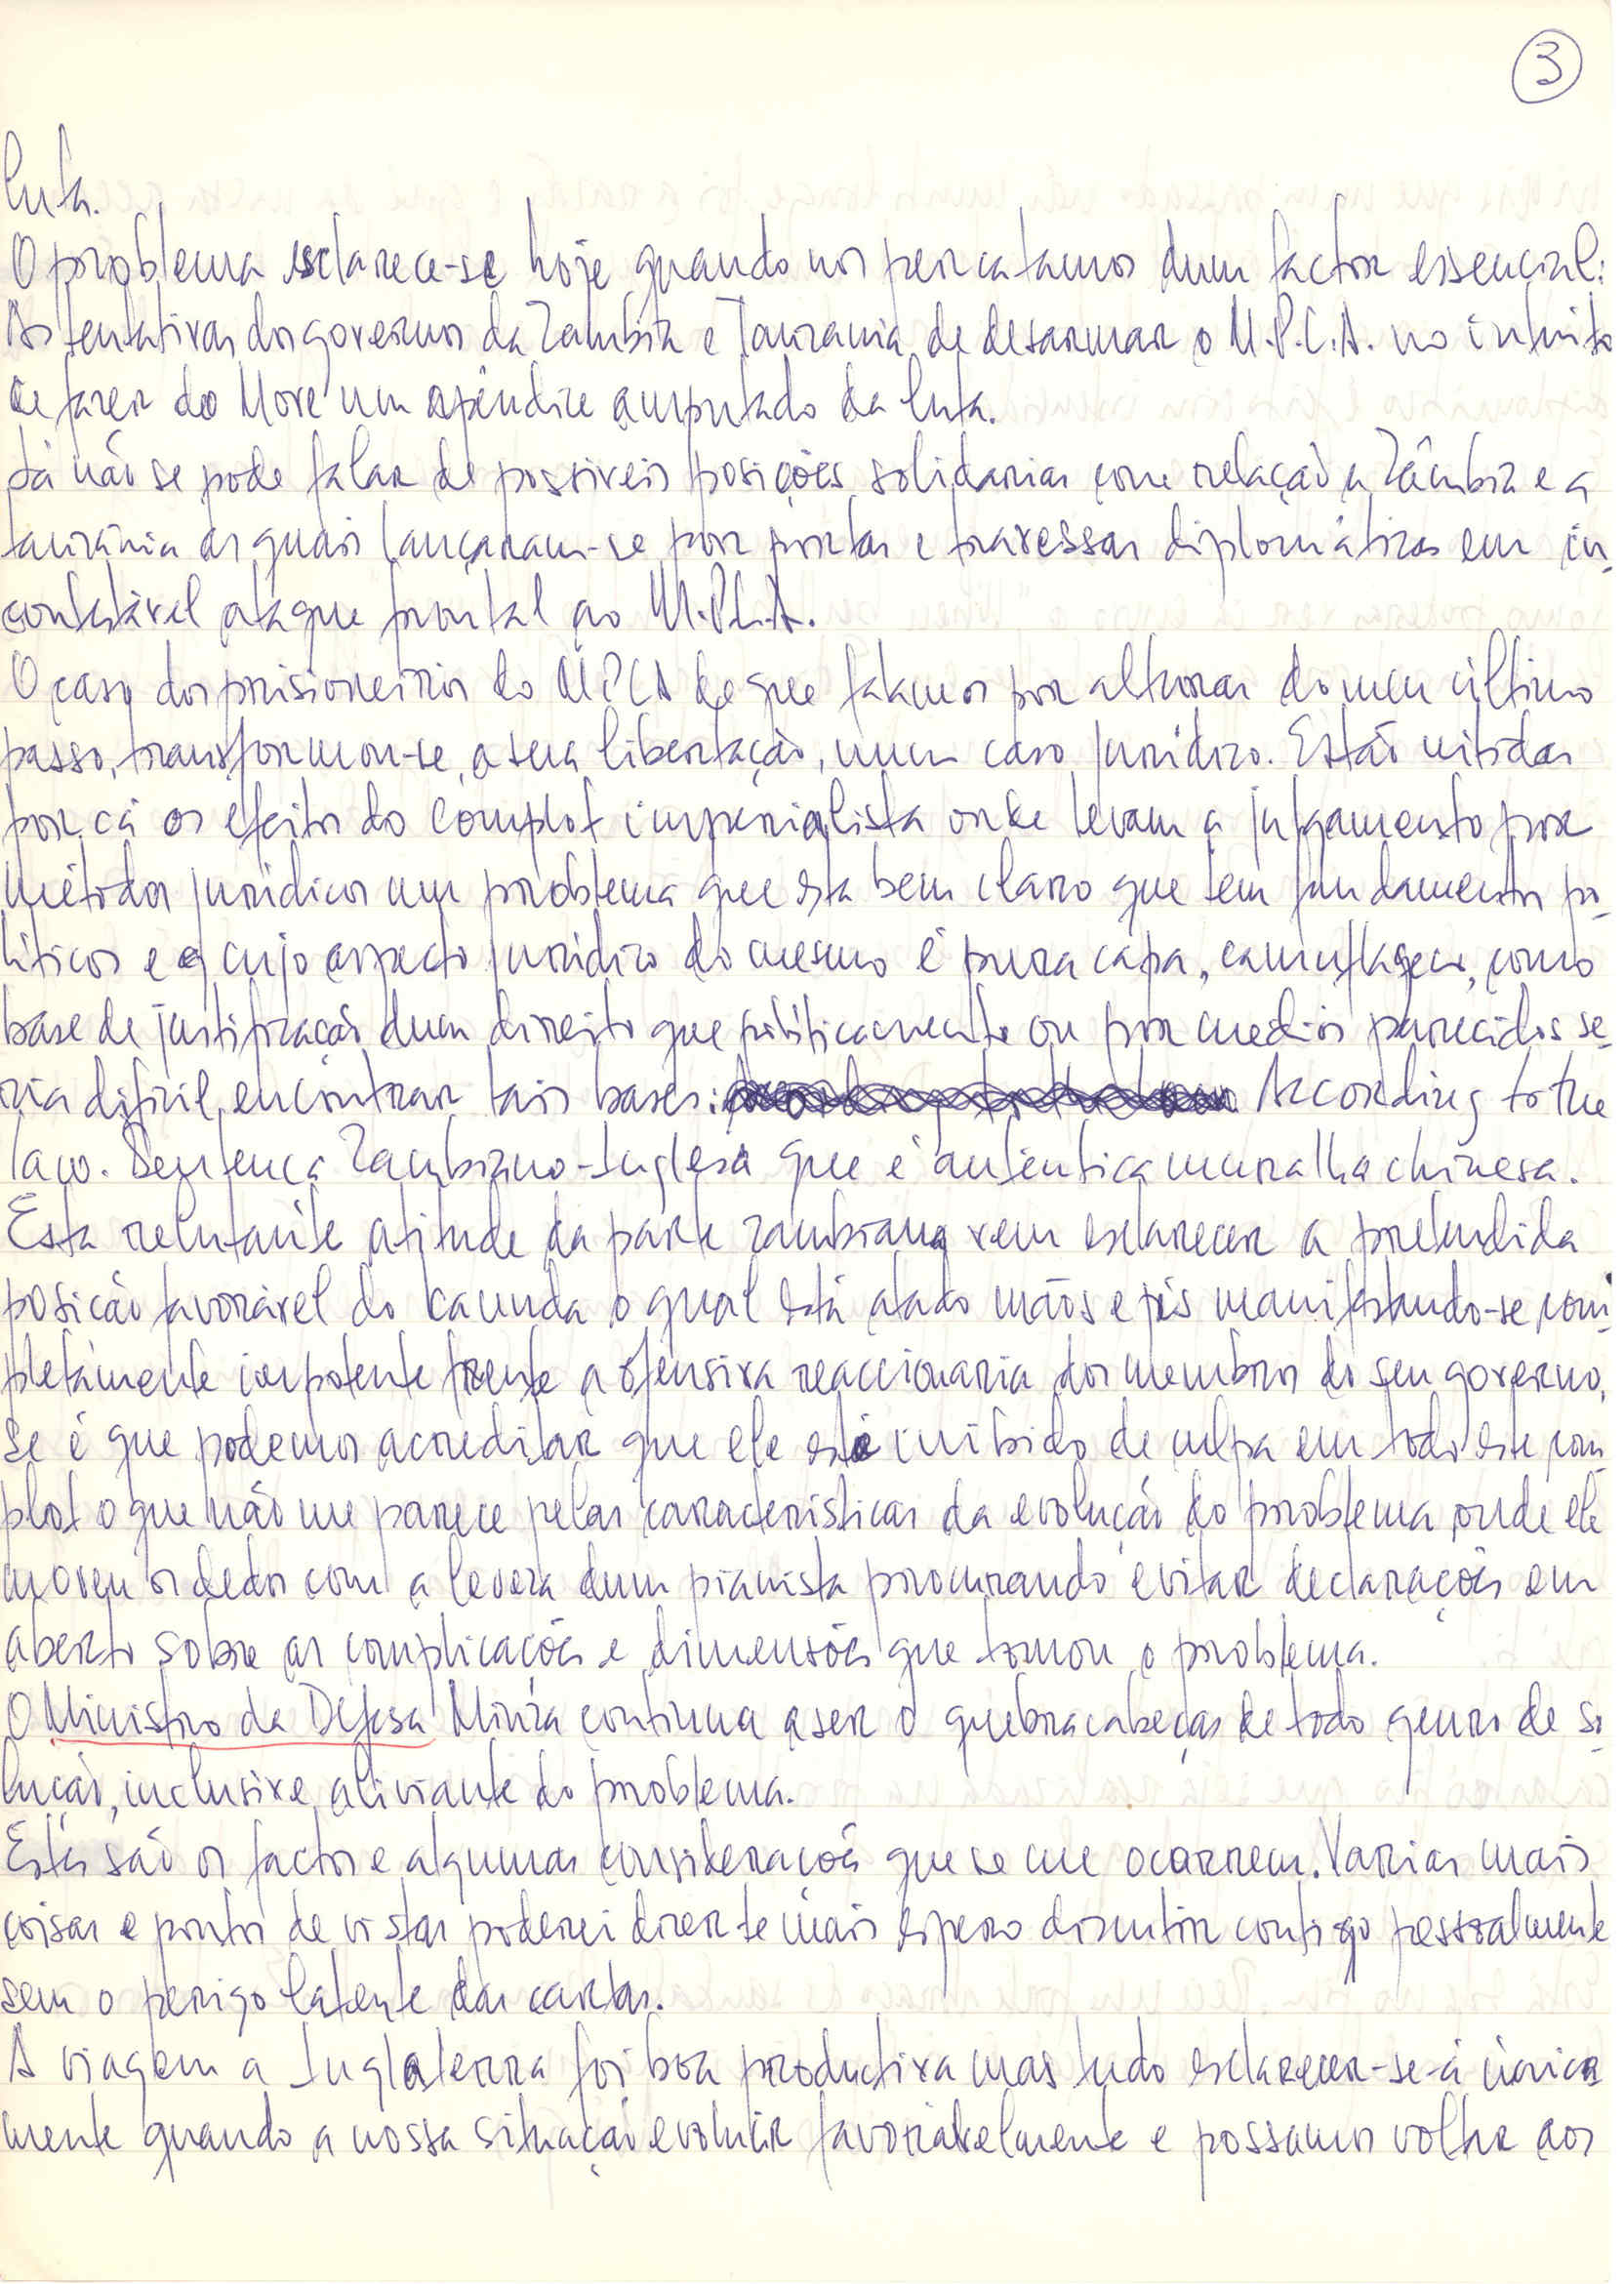 3
luta.
O problema esclarece-se hoje quando nos percatamos dum factor essencial:
As tentativas dos governos da Zambia e Tanzania de desarmar o M.P.L.A. no intuito
de fazer do Move um apêndice amputado da luta.
Já não se pode falar de possiveis posições solidarias com relação a Zâmbia e a
tanzânia as quais lançaram-se por portas e travessas diplomáticas em in-
contestável ataque frontal ao M.P.L.A.
O caso dos prisioneiros do MPLA de que falamos por alturas do meu último
passo, transformou-se, a sua libertação, num caso jurídico. Estão nitidos
por cá os efeitos do complot imperialista onde levam a julgamento por
métodos jurídicos um problema que esta bem claro que tem fundamentos po-
líticos e cujo aspecto jurídico do mesmo é pura capa, camuflagem, como
base de justificação dum direito que politicamente ou por medios parecidos se-
ria dificil encontrar tais bases: According to the
law. Sentença Zambiano-Inglesa que é autêntica muralha chinesa.
Esta relutante atitude da parte zambiana vem esclarecer a pretendida
posicão favorável do Kaunda o qual está atado mãos e pés manifestando-se com-
pletamente impotente frente a ofensiva reaccionaria dos membros do seu governo,
se é que podemos acreditar que ele está inibido de culpa em todo este com-
plot o que não me parece pelas caracteristicas da evolução do problema onde ele
moveu os dedos com a leveza dum pianista procurando evitar declarações em
aberto sobre as complicações e dimensões que tomou o problema.
O Ministro da Defesa Minza continua a ser o quebracabeças de todo genro de so-
lução, inclusive, aliviante do problema.
Estes são os factos e algumas considerações que se me ocorrem. Varias mais
coisas e pontos de vistas poderei dizer te mais espero discutir contigo pessoalmente
sem o perigo latente das cartas.
A viagem a Inglaterra foi boa productiva mas tudo esclarecer-se-á única
mente quando a nossa situação evoluir favorávelmente e possamos voltar aos